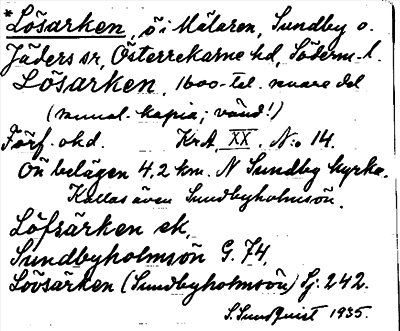 *Lösarken, ö i Mälaren, Sundby o.
Jäders sr, Österrekarne hd, Söderm. l.
Lösarken, 1600-tal. senare del
(manual. kopia; vänd!)
Förf. okd. KrA, XX. N:o 14.
Ön belägen 4,2 km. N Sundby kyrka.
Kallas även Sundbyholmsön.
Löfsärken ek,
Sundbyholmsön G. 74,
Lövsärken (Sundbyholmsön) Sj. 242.
S. Sundquist 1935.